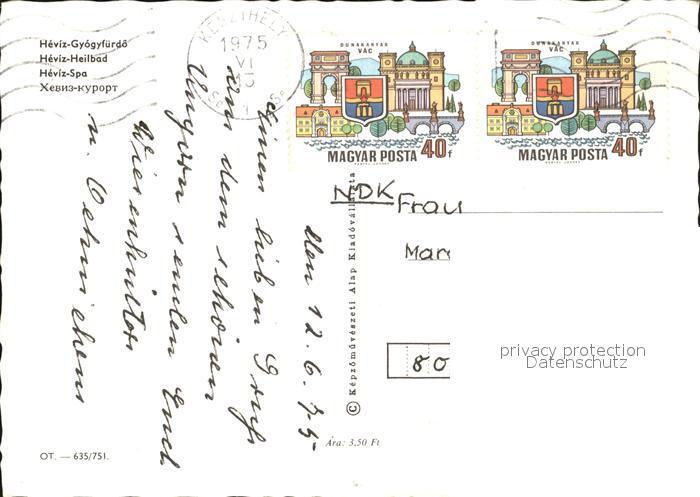 Hévíz-Gyógyfürdő
Hévíz-Heilbad
Hévíz-Spa
Хевиз-курорт
KESZTHELY
1975
VI
13
DUNAKANYAR
VÁC
MAGYAR POSTA 40 f
DUNAKANYAR
VÁC
MAGYAR POSTA 40 f
Den 12.6.75
Einen lieben Gruß
aus dem schönen
Ungarn senden Euch
u.
© Képzőművészeti Alap Kiadóvállalata
NDK
Frau
Mar
80
privacy protection
Datenschutz
Ára: 3,50 Ft
OT. — 635/751.